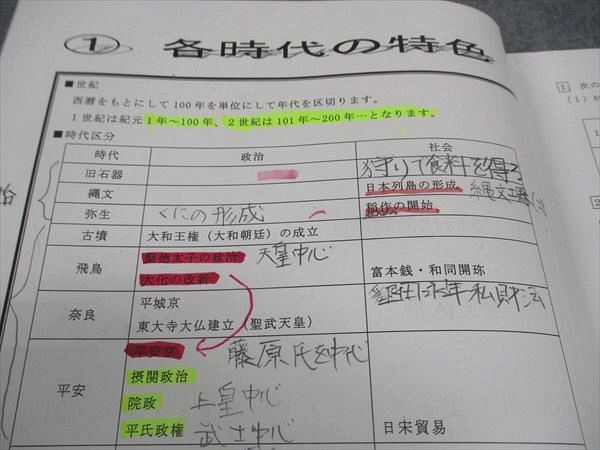 1 各時代の特色
■世紀
西暦をもとにして100年を単位にして年代を区切ります。
1世紀は紀元1年~100年、2世紀は101年~200年…となります。
■時代区分
時代 政治 社会
旧石器 狩りで食料を得る
縄文 日本列島の形成 縄文土器
弥生 くにの形成 稲作の開始
古墳 大和王権(大和朝廷)の成立
飛鳥 聖徳太子の政治 天皇中心
大化の改新 富本銭・和同開珎
奈良 平城京 墾田永年私財法
東大寺大仏建立(聖武天皇)
平安 平安京 藤原氏を中心
摂関政治
院政 上皇中心
平氏政権 武士中心 日宋貿易
1 次の
(1)